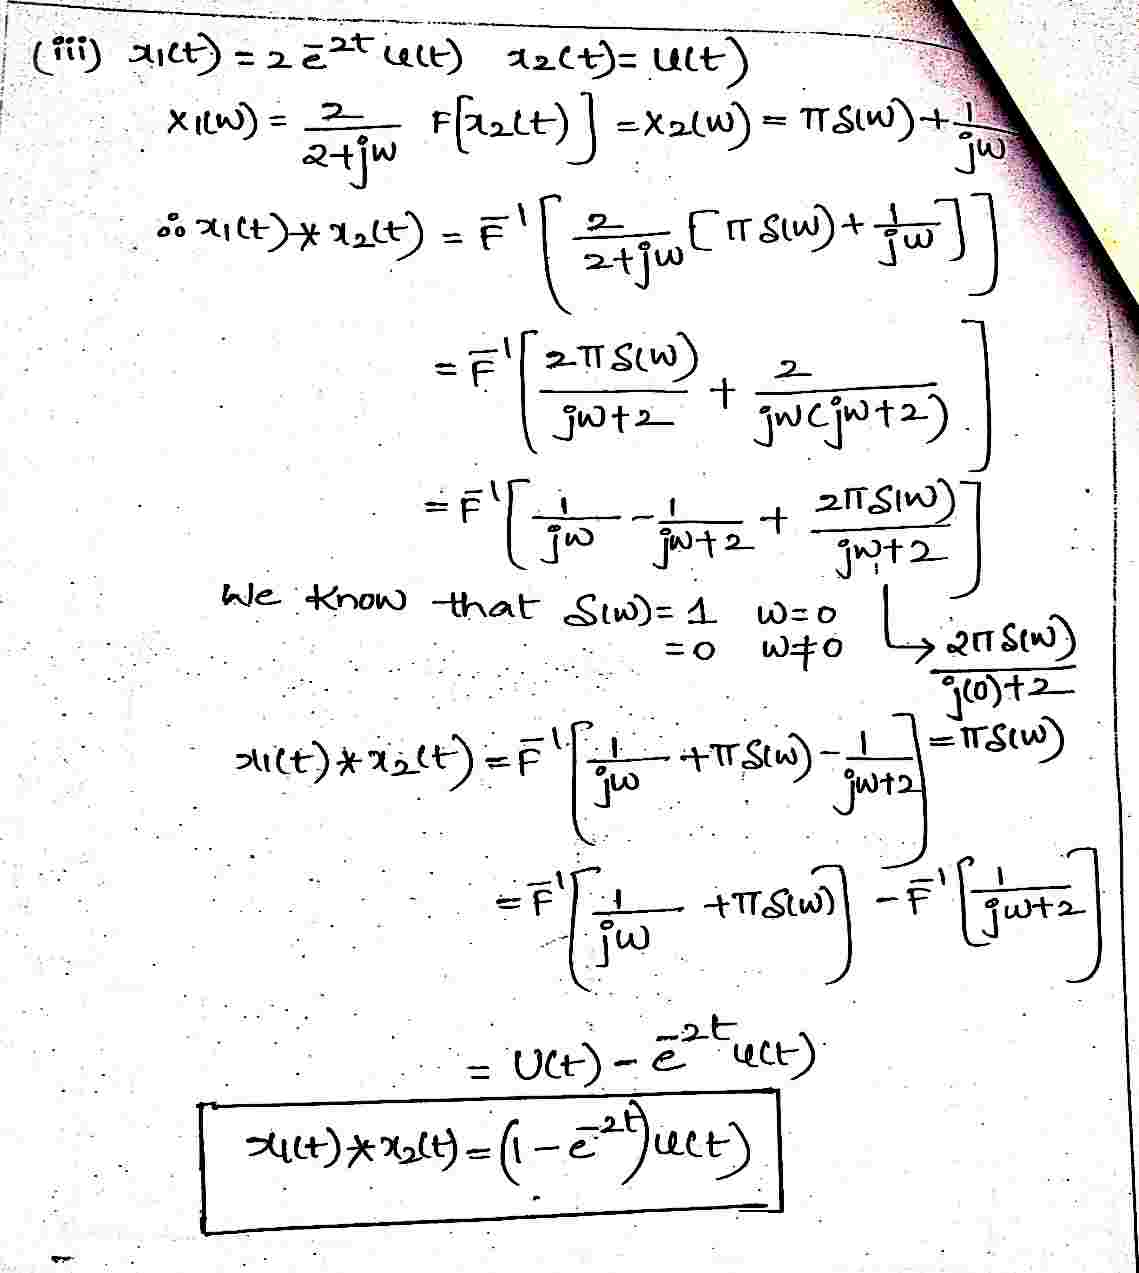 (iii) x1(t) = 2 e^-2t u(t)   x2(t) = u(t)
X1(w) = 2/(2+jw)   F[x2(t)] = X2(w) = πδ(w) + 1/jw
∴ x1(t) * x2(t) = F^-1 [ 2/(2+jw) [ πδ(w) + 1/jw ] ]
= F^-1 [ 2πδ(w)/(jw+2) + 2/(jw(jw+2)) ]
= F^-1 [ 1/jw - 1/(jw+2) + 2πδ(w)/(jw+2) ]
We know that δ(w) = 1   w=0
= 0   w≠0
↳ 2πδ(w)/(j(0)+2)
= πδ(w)
x1(t) * x2(t) = F^-1 [ 1/jw + πδ(w) - 1/(jw+2) ]
= F^-1 [ 1/jw + πδ(w) ] - F^-1 [ 1/(jw+2) ]
= U(t) - e^-2t u(t)
x1(t) * x2(t) = (1 - e^-2t) u(t)